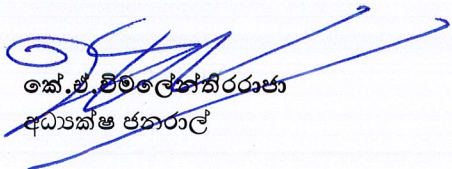 කේ.ඒ.විමලේන්තිරරාජා
අධ්‍යක්ෂ ජනරාල්